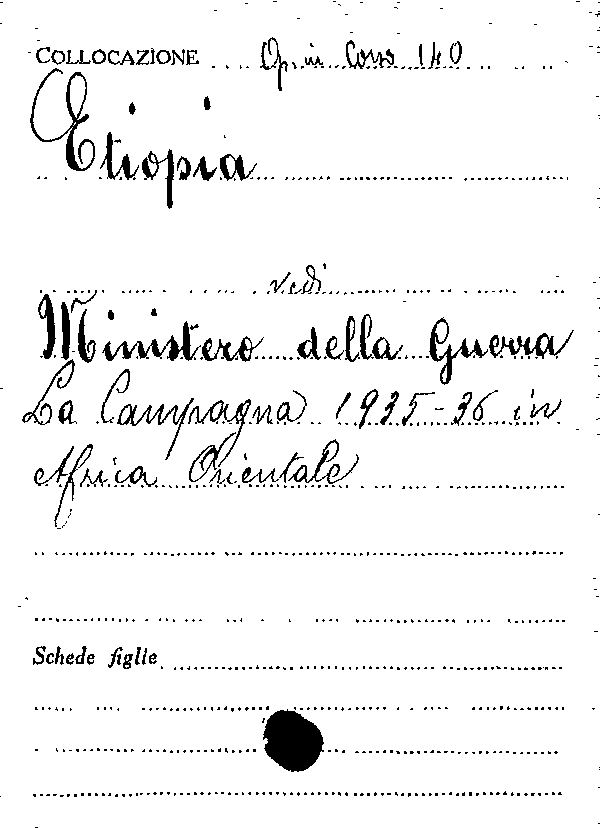 COLLOCAZIONE Op. in Corso 140
Etiopia
vedi
Ministero della Guerra
La Campagna 1935-36 in
Africa Orientale
Schede figlie